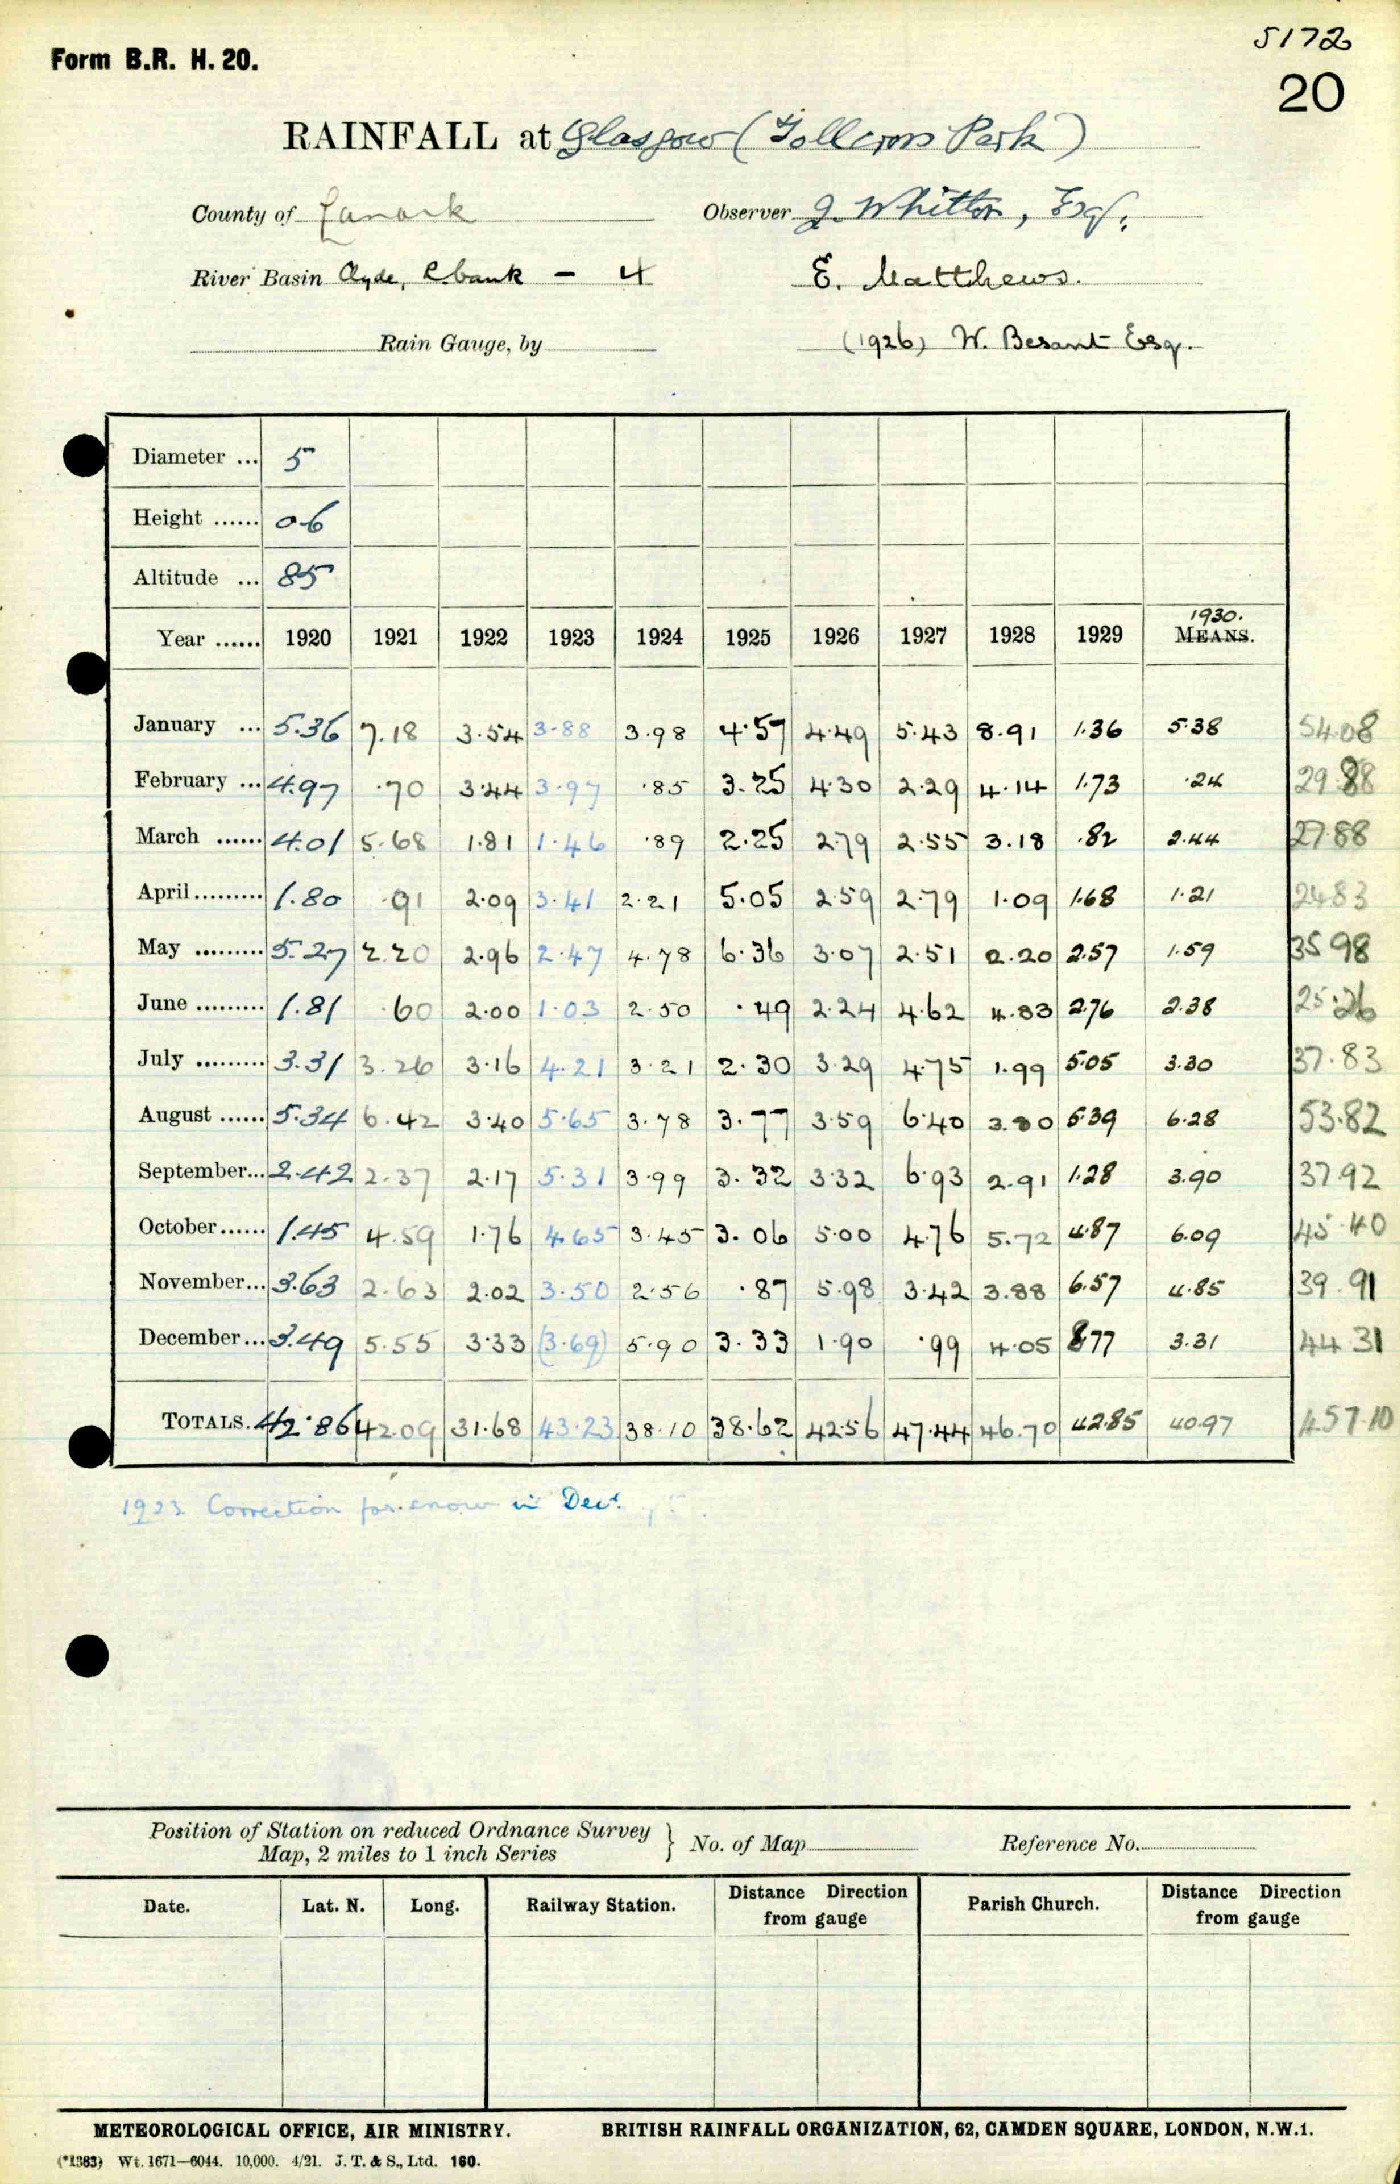 Form B.R. H. 20.
5172
20
RAINFALL at Glasgow (Tollcross Park)
County of Lanark
Observer J. Whitton, Esq.
River Basin Clyde, R. bank – 4
E. Matthews.
Rain Gauge, by
(1926) W. Besant Esq.
Diameter ... 5
Height ...... 06
Altitude ... 85
1930.
Year ...... 1920 1921 1922 1923 1924 1925 1926 1927 1928 1929 MEANS.
January ... 5.36 7.18 3.54 3.88 3.98 4.57 4.49 5.43 8.91 1.36 5.38 54.08
February ... 4.97 .70 3.44 3.97 .85 3.25 4.30 2.29 4.14 1.73 .24 29.88
March ...... 4.01 5.68 1.81 1.46 .89 2.25 2.79 2.55 3.18 .82 2.44 27.88
April......... 1.80 .91 2.09 3.41 2.21 5.05 2.59 2.79 1.09 1.68 1.21 24.83
May ......... 5.27 2.20 2.96 2.47 4.78 6.36 3.07 2.51 2.20 2.57 1.59 35.98
June ......... 1.81 .60 2.00 1.03 2.50 .49 2.24 4.62 4.83 2.76 2.38 25.26
July ......... 3.31 3.26 3.16 4.21 3.21 2.30 3.29 4.75 1.99 5.05 3.30 37.83
August ...... 5.34 6.42 3.40 5.65 3.78 3.77 3.59 6.40 3.80 5.39 6.28 53.82
September... 2.42 2.37 2.17 5.31 3.99 3.32 3.32 6.93 2.91 1.28 3.90 37.92
October...... 1.45 4.59 1.76 4.65 3.45 3.06 5.00 4.76 5.72 4.87 6.09 45.40
November... 3.63 2.63 2.02 3.50 2.56 .87 5.98 3.42 3.88 6.57 4.85 39.91
December... 3.49 5.55 3.33 (3.69) 5.90 3.33 1.90 .99 4.05 8.77 3.31 44.31
TOTALS. 42.86 42.09 31.68 43.23 38.10 38.62 42.56 47.44 46.70 42.85 40.97 457.10
1923 Correction for snow in Dec.
Position of Station on reduced Ordnance Survey
Map, 2 miles to 1 inch Series } No. of Map Reference No.
Date. Lat. N. Long. Railway Station. Distance Direction from gauge Parish Church. Distance Direction from gauge
METEOROLOGICAL OFFICE, AIR MINISTRY. BRITISH RAINFALL ORGANIZATION, 62, CAMDEN SQUARE, LONDON, N.W.1.
(*1383) Wt. 1671—6044. 10,000. 4/21. J. T. & S., Ltd. 160.